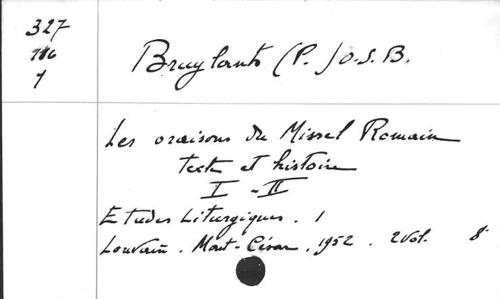 327
786
1
Bruylants (P.) O.S.B.
Les oraisons du Missel Romain
texte et histoire
I - II
Etudes Liturgiques . 1
Louvain . Mont-César, 1952 . 2 vol. 8°